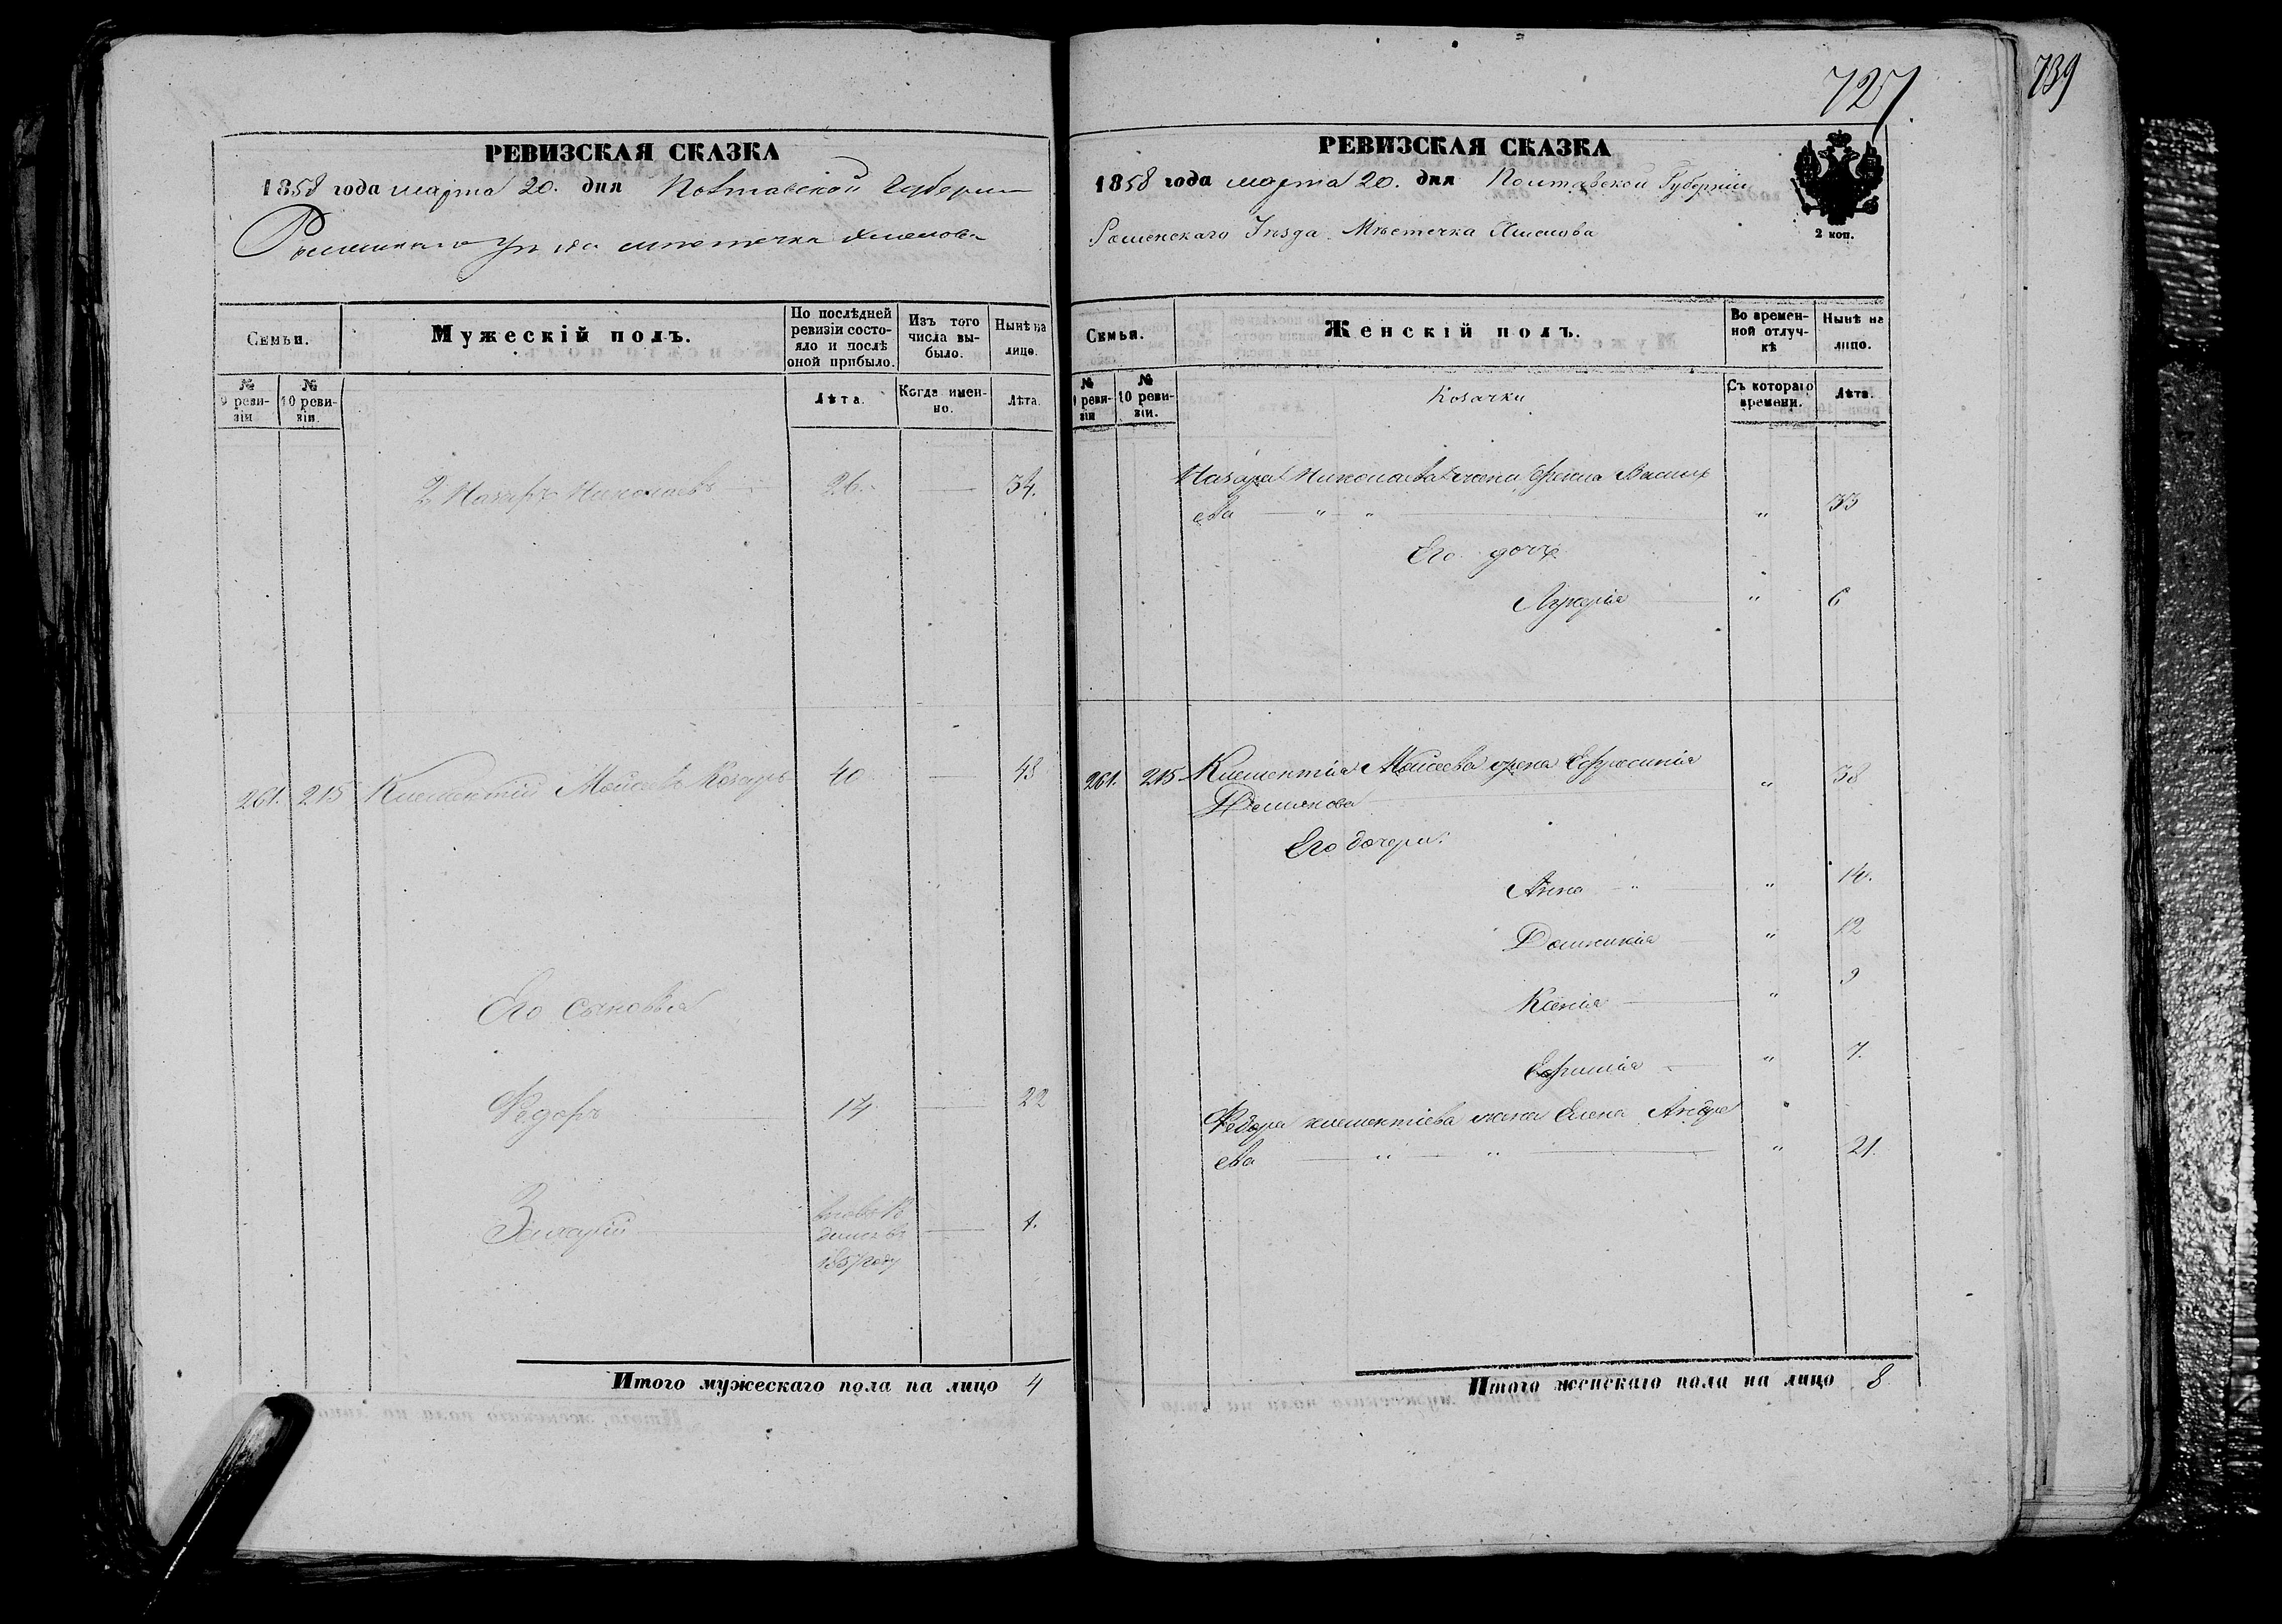 727
739
РЕВИЗСКАЯ СКАЗКА
1858 года марта 20. дня Полтавской Губернии
Роменскаго Уѣзда мѣстечка Хмелова
Семьи.
Мужескій полъ.
По послѣдней ревизіи состояло и послѣ оной прибыло.
Изъ того числа выбыло.
Нынѣ на лицо.
№ 9 ревизіи
№ 10 ревизіи.
Лѣта.
Когда именно.
Лѣта.
2 Назаръ Николаевъ 26. — 34.
261. 215 Климентій Моисеевъ Козаръ 40 — 48
Его сыновья
Федоръ 14 — 22
Захарій — 1.
1857 году
Итого мужескаго пола на лицо 4
РЕВИЗСКАЯ СКАЗКА
1858 года марта 20. дня Полтавской Губерніи
Роменскаго Уѣзда Мѣстечка Хмелова
2 коп.
Семья.
Женскій полъ.
Во временной отлучкѣ
Нынѣ на лицо.
№ 9 ревизіи
№ 10 ревизіи.
Козачки
Съ котораго времени.
Лѣта.
Назара Николаева жена Васильева " 33
Его дочь
Лукерія " 6
261. 215 Климентія Моисеева жена Ефросинія
Демьянова " 38
Его дочери:
Анна " 14.
Домникія " 12
Ксенія " 9
" 7.
Федора Климентіева жена Елена Андре
ева " 21.
Итого женскаго пола на лицо 8